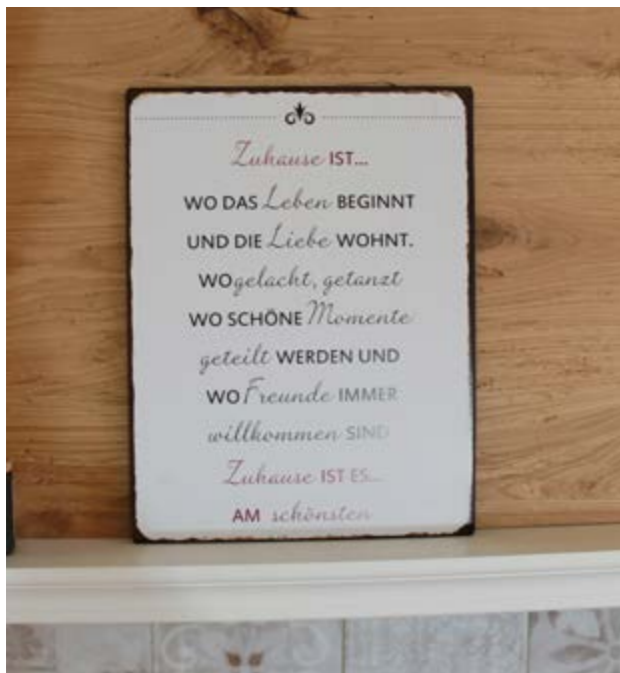 Zuhause IST...
WO DAS Leben BEGINNT
UND DIE Liebe WOHNT.
WO gelacht, getanzt
WO SCHÖNE Momente
geteilt WERDEN UND
WO Freunde IMMER
willkommen SIND
Zuhause IST ES...
AM schönsten